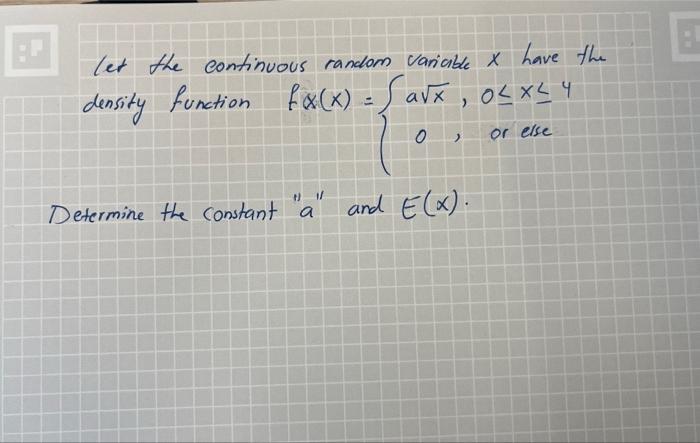 let the continuous random variable x have the
density function fx(x) = { a√x , 0≤x≤4
0 , or else
Determine the constant "a" and E(x).